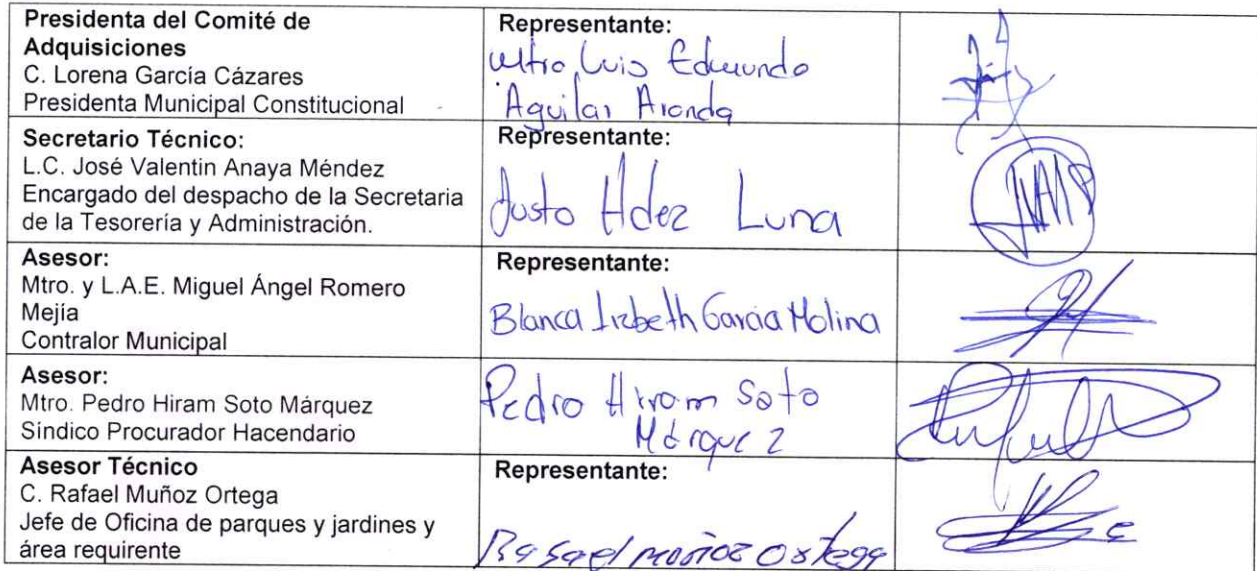 Presidenta del Comité de
Adquisiciones
C. Lorena García Cázares
Presidenta Municipal Constitucional
Representante:
Mtro Luis Edmundo
Aguilar Aranda
Secretario Técnico:
L.C. José Valentin Anaya Méndez
Encargado del despacho de la Secretaria
de la Tesorería y Administración.
Representante:
Justo Hdez Luna
Asesor:
Mtro. y L.A.E. Miguel Ángel Romero
Mejía
Contralor Municipal
Representante:
Blanca Lizbeth Garcia Molina
Asesor:
Mtro. Pedro Hiram Soto Márquez
Síndico Procurador Hacendario
Pedro Hiram Soto
Márquez
Asesor Técnico
C. Rafael Muñoz Ortega
Jefe de Oficina de parques y jardines y
área requirente
Representante:
Rafael muñoz Ortega